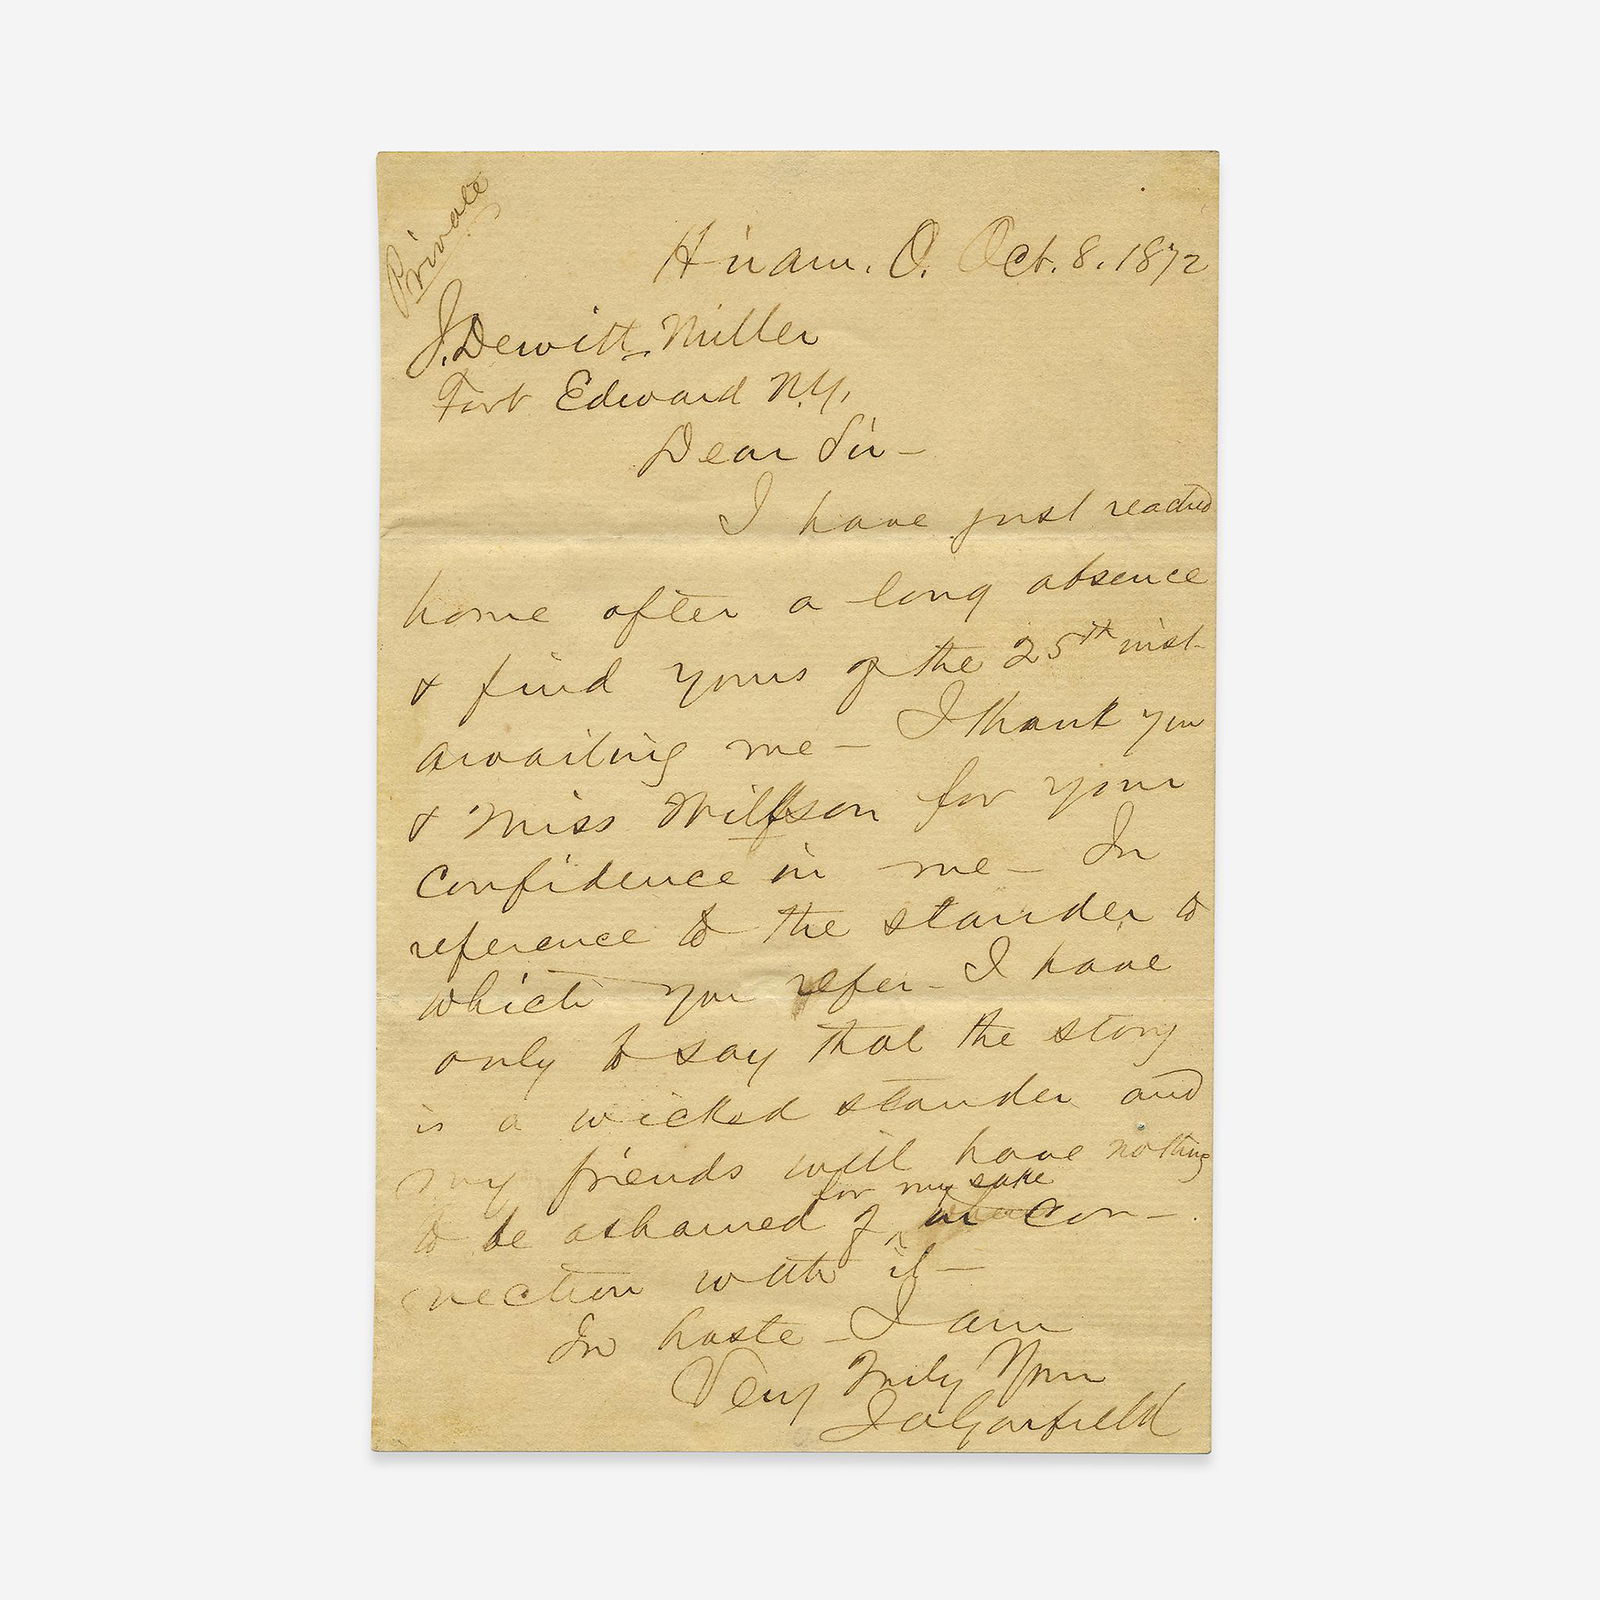 Private
Hiram. O. Oct. 8. 1872
J. Dewitt Miller
Fort Edward N.Y.
Dear Sir –
I have just reached
home after a long absence
& find yours of the 25th inst.
awaiting me – I thank you
& Miss for your
confidence in me – In
reference to the slander to
which you refer – I have
only to say that the story
is a wicked slander and
my friends will have nothing
for my sake
to be ashamed of ‸ in con-
nection with it –
In haste – I am
Very Truly Yours
J A Garfield